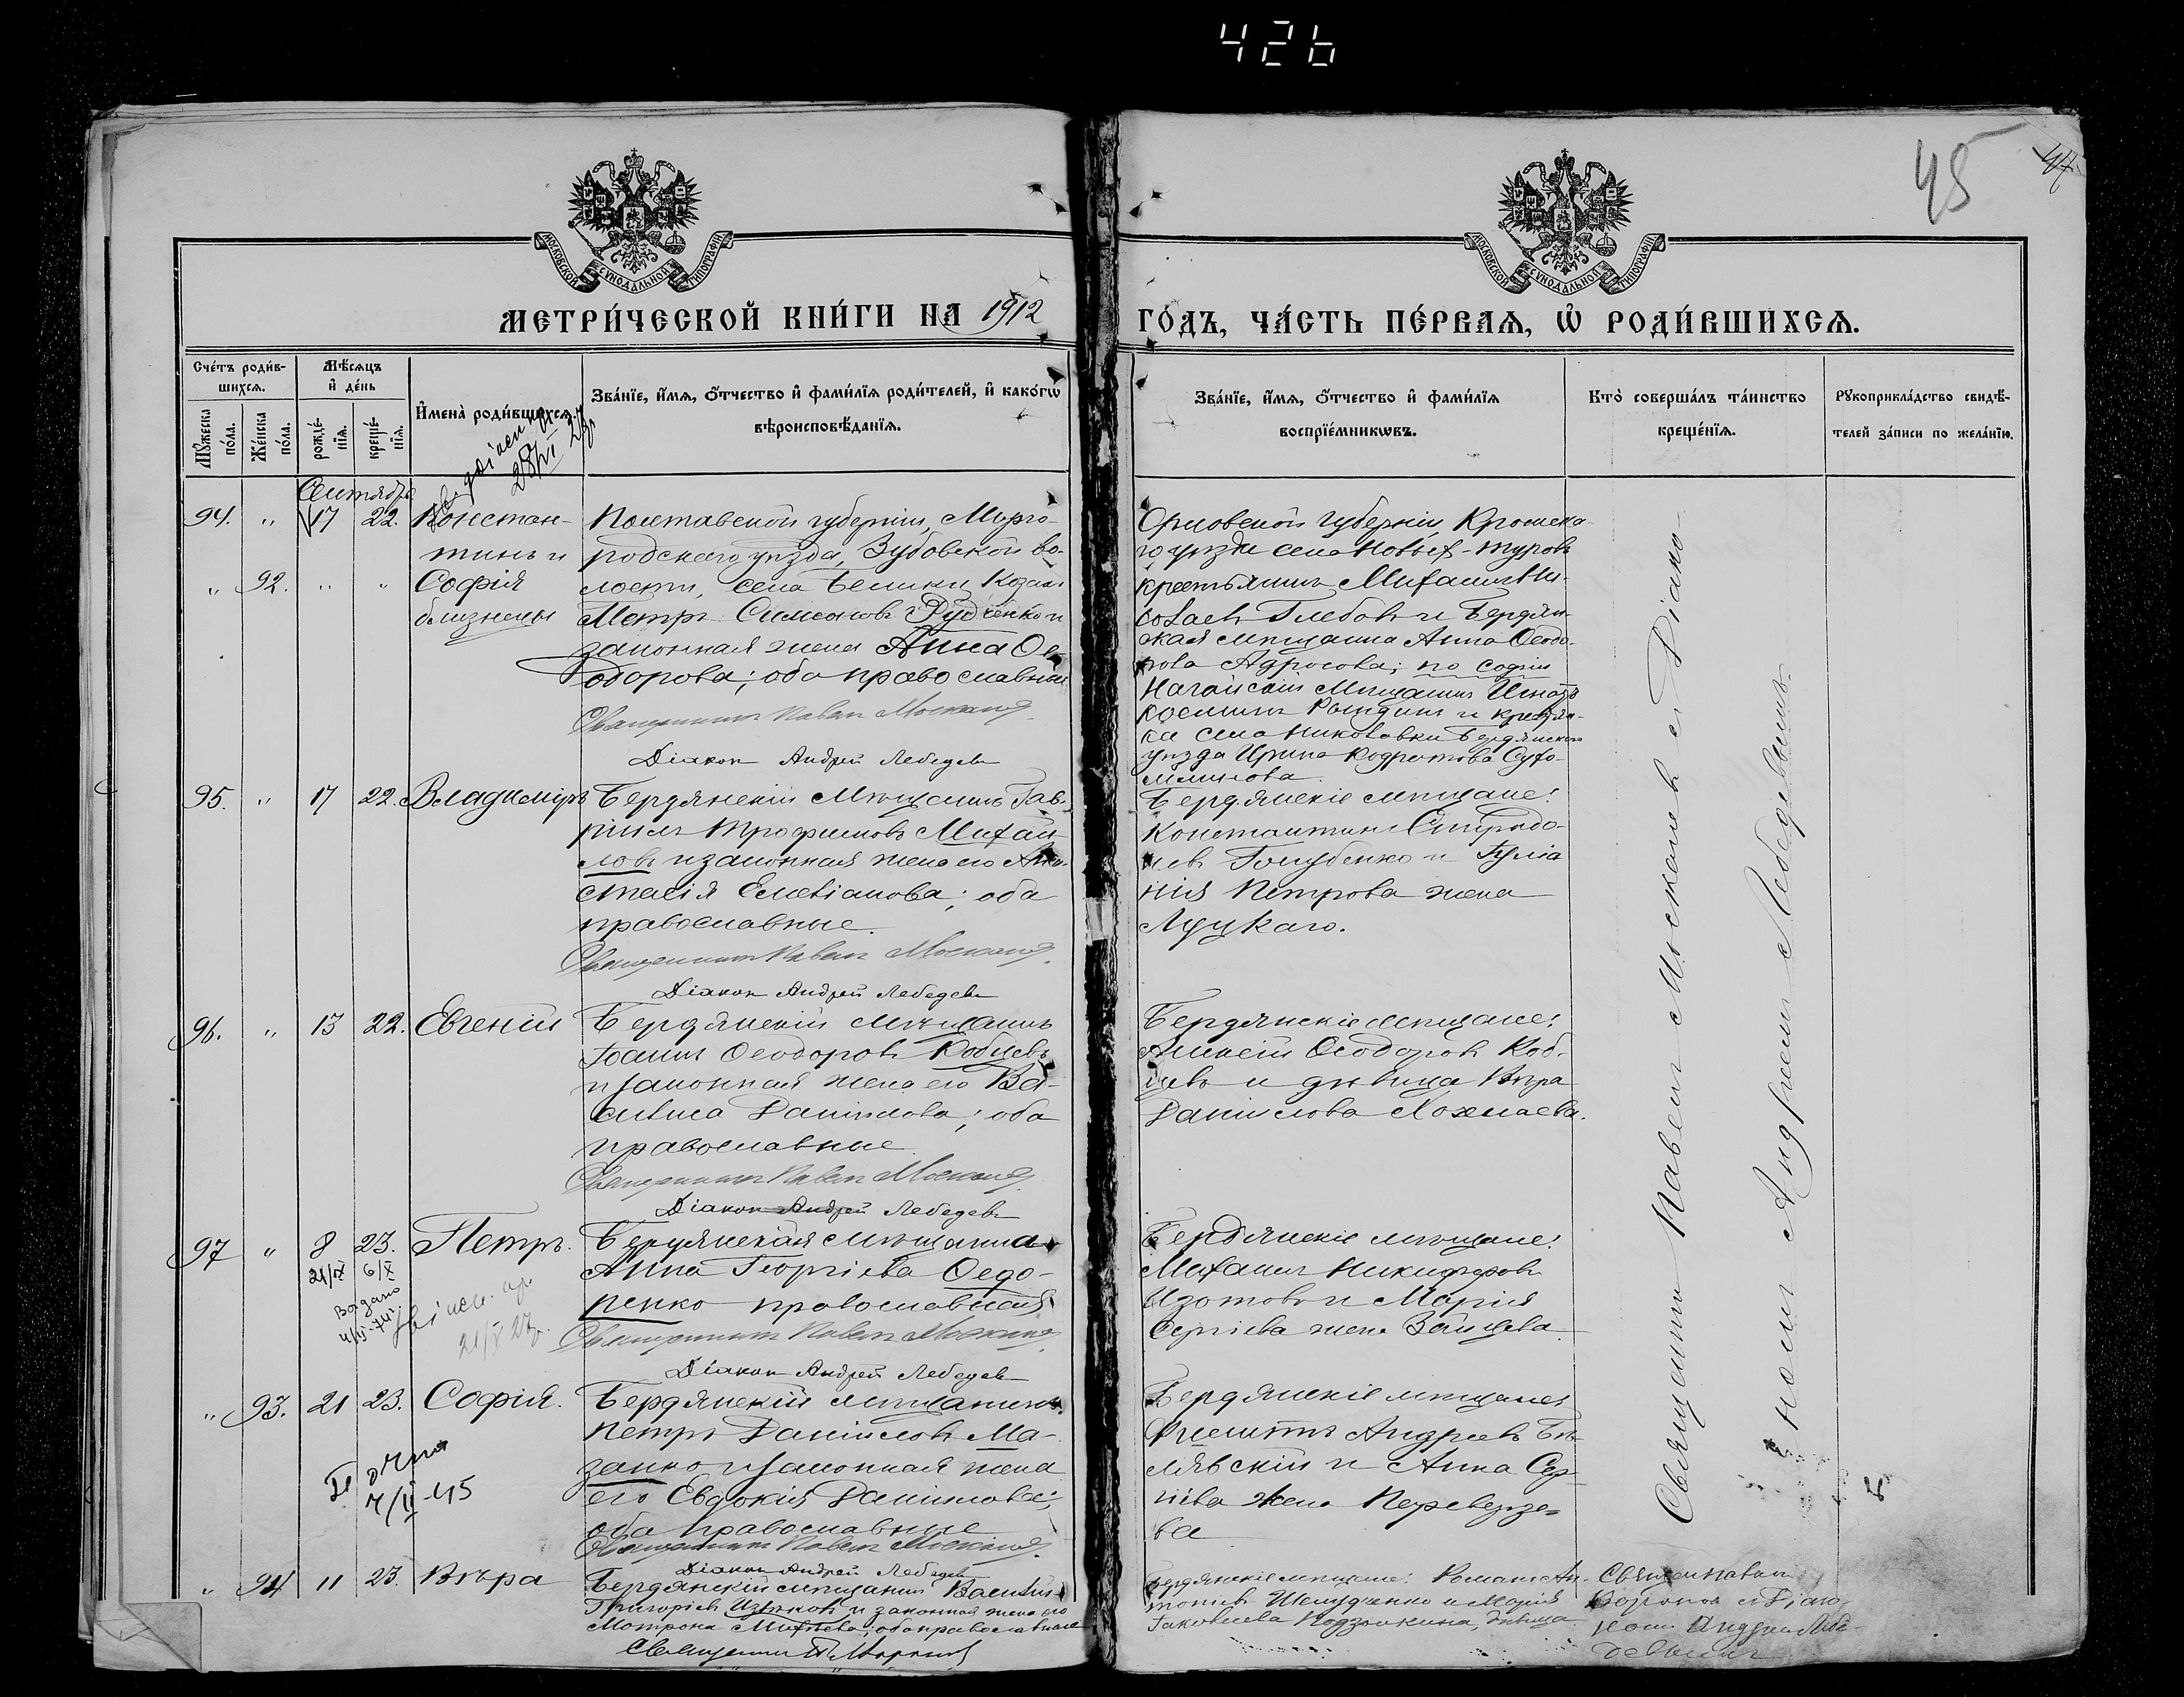 426
45
МОСКОВСКОЙ СУНОДАЛЬНОЙ ТИПОГРАФІИ
МОСКОВСКОЙ СУНОДАЛЬНОЙ ТИПОГРАФІИ
МЕТРИ́ЧЕСКОЙ КНИ́ГИ НА 1912
ГО́ДЪ, ЧА́СТЬ ПЕ́РВАЯ, Ѡ РОДИ́ВШИХСЯ.
Сче́тъ роди́в-
шихся.
Мѣ́сяцъ
и҆ де́нь
Мꙋ́жеска по́ла.
Же́нска по́ла.
рожде́-нїя.
креще́-нїя.
И҆мена̀ роди́вшихся.
Зва́нїе, и҆́мя, ѻ҆́тчество и҆ фами́лїя роди́телей, и҆ како́гѡ
вѣроисповѣ́данїя.
Зва́нїе, и҆́мя, ѻ҆́тчество и҆ фами́лїя
воспрїе́мникѡвъ.
Кто̀ соверша́лъ та́инство
креще́нїя.
Рꙋкоприкла́дство свидѣ́-
телей за́писи по жела́нїю.
28/VI 27
Сентябрь
94. " 17 22. Констан-
тинъ и
" 92. " " Софія
близнецы
Полтавской губерніи, Мирго-
родскаго уѣзда, Зубовской во-
лости, села Белики, козакъ
Петръ Симеоновъ Рудченко и
законная жена Анна Ѳе-
одорова; оба православные
Священникъ Павелъ Москалевъ
Діаконъ Андрей Лебедевъ
Орловской губерніи, Кромска-
го уѣзда села Новыхъ-Туровъ
крестьянинъ Михаилъ Ни-
колаевъ Глебовъ и Бердян-
ская мѣщанка Анна Ѳеодо-
рова Адросова; по Софіи
Ногайскій мѣщанинъ Игнатъ
и крестьян-
ка села Николаевки Бердянскаго
уѣзда Ирина Кодратова Сухо-
млинова.
95. " 17 22. Владиміръ
Бердянскій мѣщанинъ Гав-
ріилъ Трофимовъ Михай-
ловъ и законная жена его Ана-
стасія Емеліанова; оба
православные.
Священникъ Павелъ Москалевъ
Діаконъ Андрей Лебедевъ
Бердянскіе мѣщане:
Константинъ Спиридо-
новъ Голубенко и Іуліа
нія Петрова жена
Луцкаго.
96. " 13 22. Евгеній
Бердянскій мѣщанинъ
Іоаннъ Ѳеодоровъ Кобцевъ
и законная жена его Ва-
силиса Даніилова; оба
православные
Священникъ Павелъ Москалевъ
Діаконъ Андрей Лебедевъ
Бердянскіе мѣщане:
Алексій Ѳеодоровъ Коб-
цевъ и дѣвица Вѣра
Даніилова Лохмаева.
97 " 8 23. Петръ.
21/IX 6/X
Бердянская мѣщанка
Анна Георгіева Ѳедо-
ренко православная
Священникъ Павелъ Москалевъ
Діаконъ Андрей Лебедевъ
Бердянскіе мѣщане:
Михаилъ Никифоровъ
Изотовъ и Марія
Сергіева жена Зайцева.
" 93. 21 23. Софія.
7/II-45
Бердянскій мѣщанинъ
Петръ Даніиловъ Ма-
занко и законная жена
его Евдокія Даніилова;
оба православные
Священникъ Павелъ Москалевъ
Діаконъ Андрей Лебедевъ
Бердянскіе мѣщане:
Филиппъ Андреевъ Бѣ-
лявскій и Анна Сер-
гіева жена Переверзе-
ва
" 94 11 23. Вѣра
Бердянскій мѣщанинъ Василій
Григорьевъ Изюковъ и законная жена его
Матрона Михеева; оба православные
Священникъ
Бердянскіе мѣщане: Романъ Ан-
тоновъ и Марія
Іаковлева дѣвица
Священникъ Павелъ Москалевъ съ Діако-
номъ Андреемъ Лебедевымъ.
Священникъ
Воронов съ Діако-
номъ Андреемъ Лебе-
девымъ